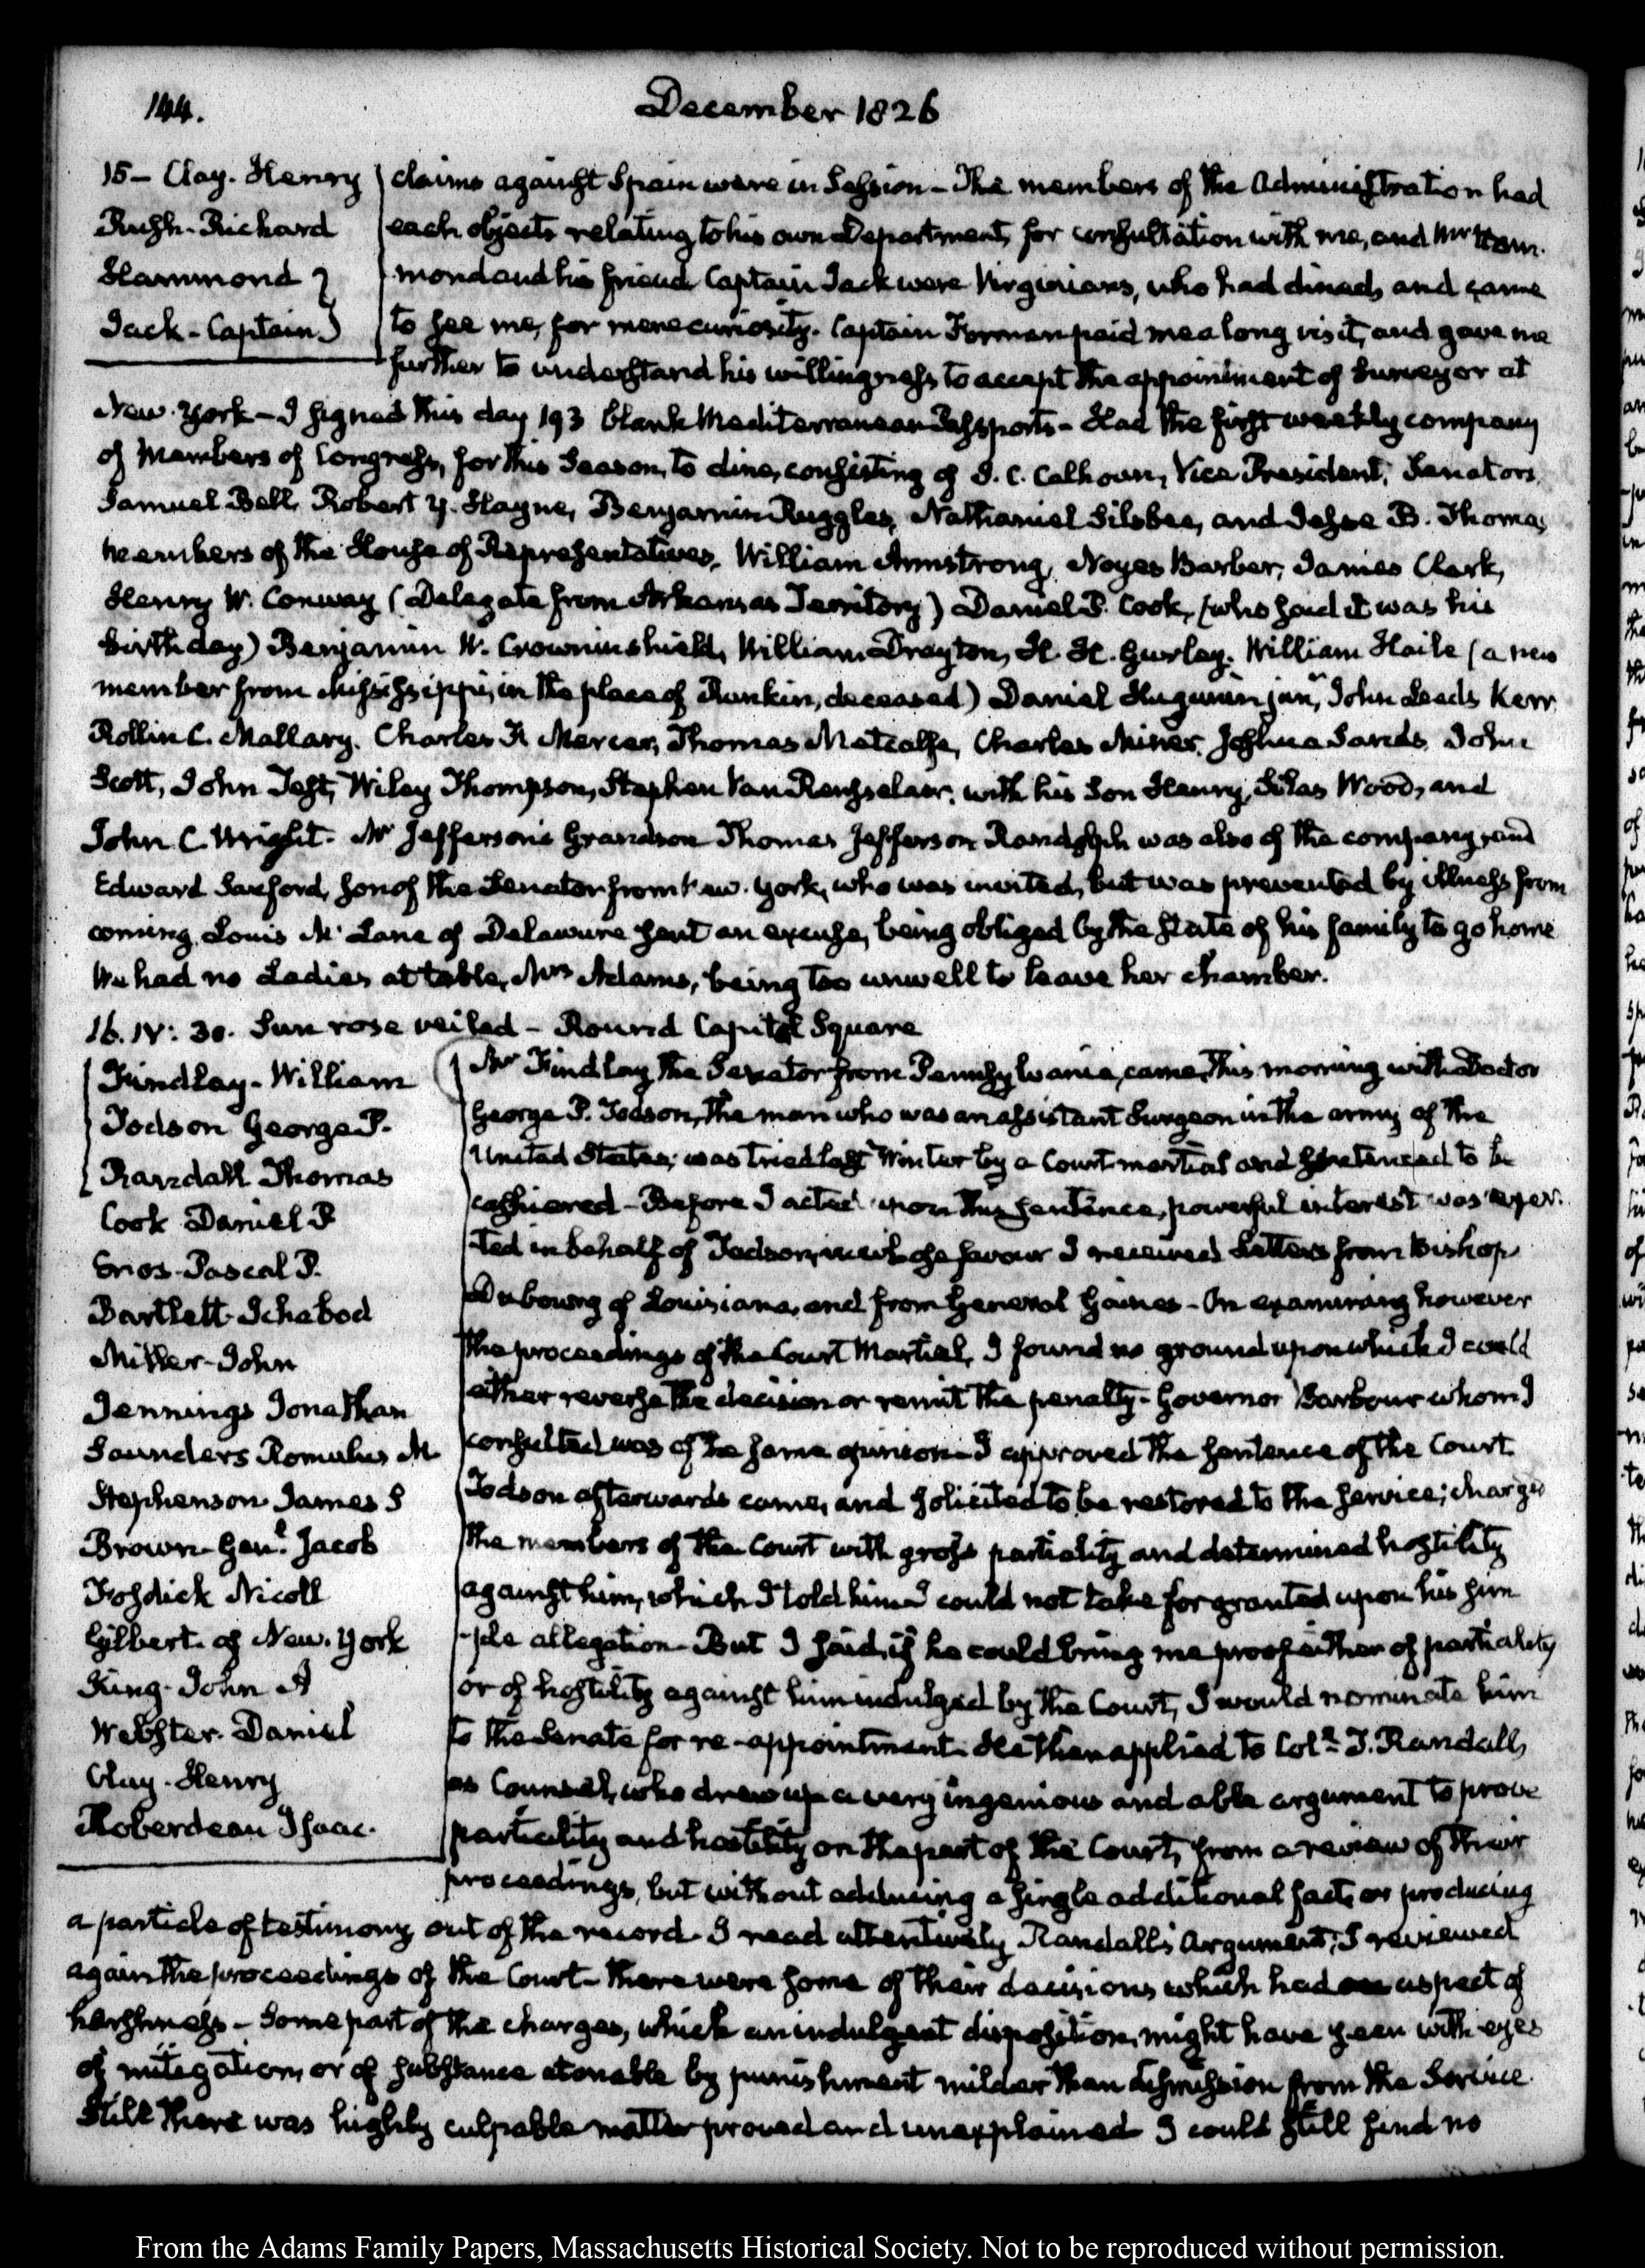 144.
December 1826
15 – Clay. Henry
Rush. Richard
Hammond }
Jack – Captain }
claims against Spain were in Session – The members of the Administration had
each objects relating to his own Department, for consultation with me, and Mr Ham-
mond and his friend Captain Jack were Virginians, who had dined, and came
to see me, for mere curiosity. Captain Forman paid me a long visit, and gave me
further to understand his willingness to accept the appointment of Surveyor at
New-York – I signed this day 193 blank Mediterranean Passports – Had the first weekly company
of Members of Congress, for this Season, to dine, consisting of J. C. Calhoun, Vice-President; Senators,
Samuel Bell, Robert Y. Hayne, Benjamin Ruggles, Nathaniel Silsbee, and Jesse B. Thomas,
members of the House of Representatives, William Armstrong, Noyes Barber, James Clark,
Henry W. Conway (Delegate from Arkansas Territory) Daniel P. Cook, (who said it was his
birth day) Benjamin W. Crowninshield, William Drayton, H. H. Gurley. William Haile (a new
member from Mississippi, in the place of Rankin, deceased) Daniel Hugunin junr, John Leeds Kerr
Rollin C. Mallary. Charles F. Mercer, Thomas Metcalfe, Charles Miner, Joshua Sands, John
Scott, John Test, Wiley Thompson, Stephen Van Rensselaer, with his Son Henry, Silas Wood, and
John C. Wright. Mr Jefferson's Grandson Thomas Jefferson Randolph was also of the company, and
Edward Sanford, son of the Senator from New-York, who was invited, but was prevented by illness from
coming. Louis McLane of Delaware sent an excuse, being obliged by the state of his family to go home
We had no Ladies at table, Mrs Adams, being too unwell to leave her chamber.
16. IV: 30. Sun rose veiled – Round Capitol Square
Findlay – William
Todson George P.
Randall Thomas
Cook Daniel P
Enos. Pascal P.
Bartlett Ichabod
Miller – John
Jennings Jonathan
Saunders Romulus M
Stephenson James S
Brown – Genl. Jacob
Fosdick Nicoll
Gilbert of New-York
King. John A
Webster. Daniel
Clay. Henry
Roberdeau Isaac.
Mr Findlay the Senator from Pennsylvania, came this morning with Doctor
George P. Todson, the man who was an assistant Surgeon in the army of the
United States; was tried last Winter by a Court-martial and sentenced to be
cashiered – Before I acted upon this sentence, powerful interest was exer-
ted in behalf of Todson, in whose favour I received Letters from Bishop
Dubourg of Louisiana, and from General Gaines – On examining however
the proceedings of the Court Martial, I found no ground upon which I could
either reverse the decision or remit the penalty – Governor Barbour whom I
consulted was of the same opinion – I approved the sentence of the Court
Todson afterwards came, and solicited to be restored to the service; charged
the members of the Court with gross partiality and determined hostility
against him, which I told him I could not take for granted upon his sim
-ple allegation – But I said, if he could bring me proof either of partiality
or of hostility against him indulged by the Court, I would nominate him
to the Senate for re-appointment. He then applied to Coll. T. Randall,
as Counsel, who drew up a very ingenious and able argument to prove
partiality and hostility on the part of the Court, from a review of their
proceedings, but without adducing a single additional fact, or producing
a particle of testimony out of the record. I read attentively Randall's Argument; I reviewed
again the proceedings of the Court – there were some of their decisions which had an aspect of
harshness – Some part of the charges, which an indulgent disposition, might have seen with eyes
of mitigation, or of substance atonable by punishment milder than dismission from the Service
Still there was highly culpable matter proved and unexplained I could still find no
From the Adams Family Papers, Massachusetts Historical Society. Not to be reproduced without permission.